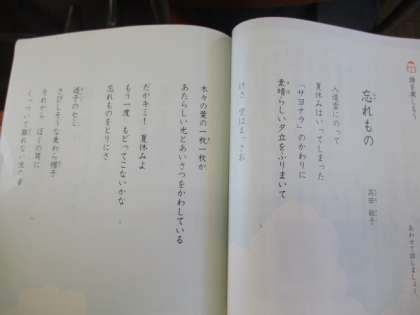 詩を楽しもう
忘れもの
高田 敏子
入道雲にのって
夏休みはいってしまった
「サヨナラ」のかわりに
素晴らしい夕立をふりまいて
けさ 空はまっさお
木々の葉の一枚一枚が
あたらしい光とあいさつをかわしている
だがキミ! 夏休みよ
もう一度 もどってこないかな
忘れものをとりにさ
迷子のセミ
さびしそうな麦わら帽子
それから ぼくの耳に
くっついて離れない波の音